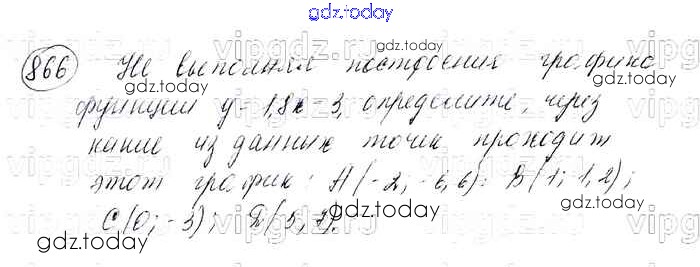 gdz.today
866 Не выполняя построения графика
gdz.today
функции y = 1,8x - 3, определите, через
какие из данных точек проходит
этот график: A(-2; -6,6); B(1; 1,2);
gdz.today
C(0; -3); D(5; 7).
gdz.today
gdz.today